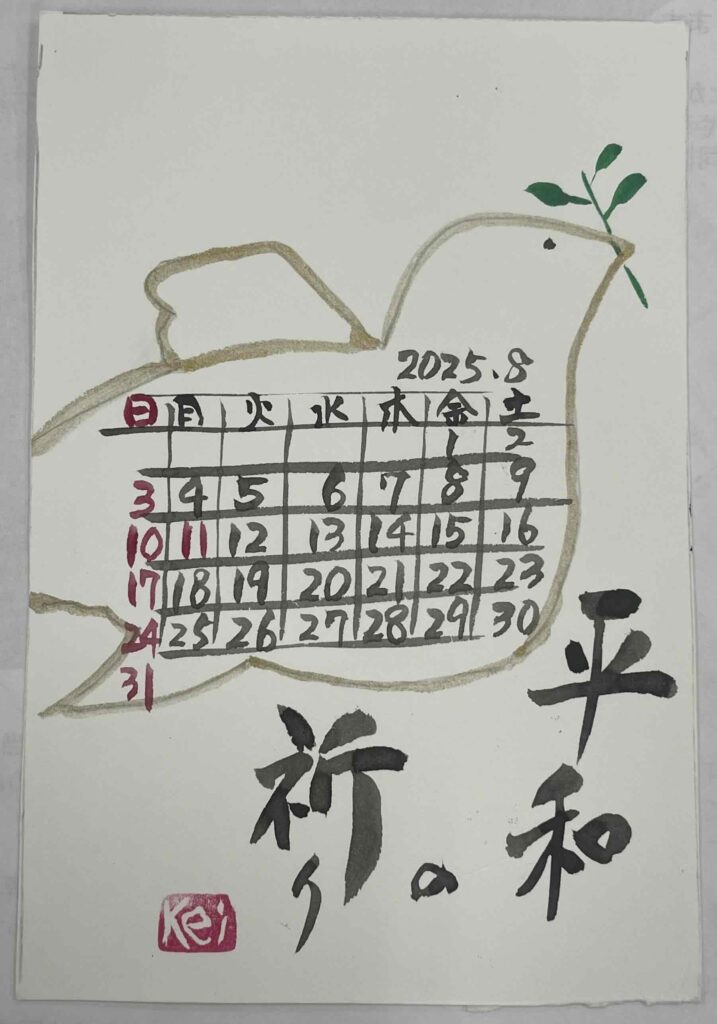 2025.8
日 月 火 水 木 金 土
1 2
3 4 5 6 7 8 9
10 11 12 13 14 15 16
17 18 19 20 21 22 23
24 25 26 27 28 29 30
31
平和
の
祈り
Kei